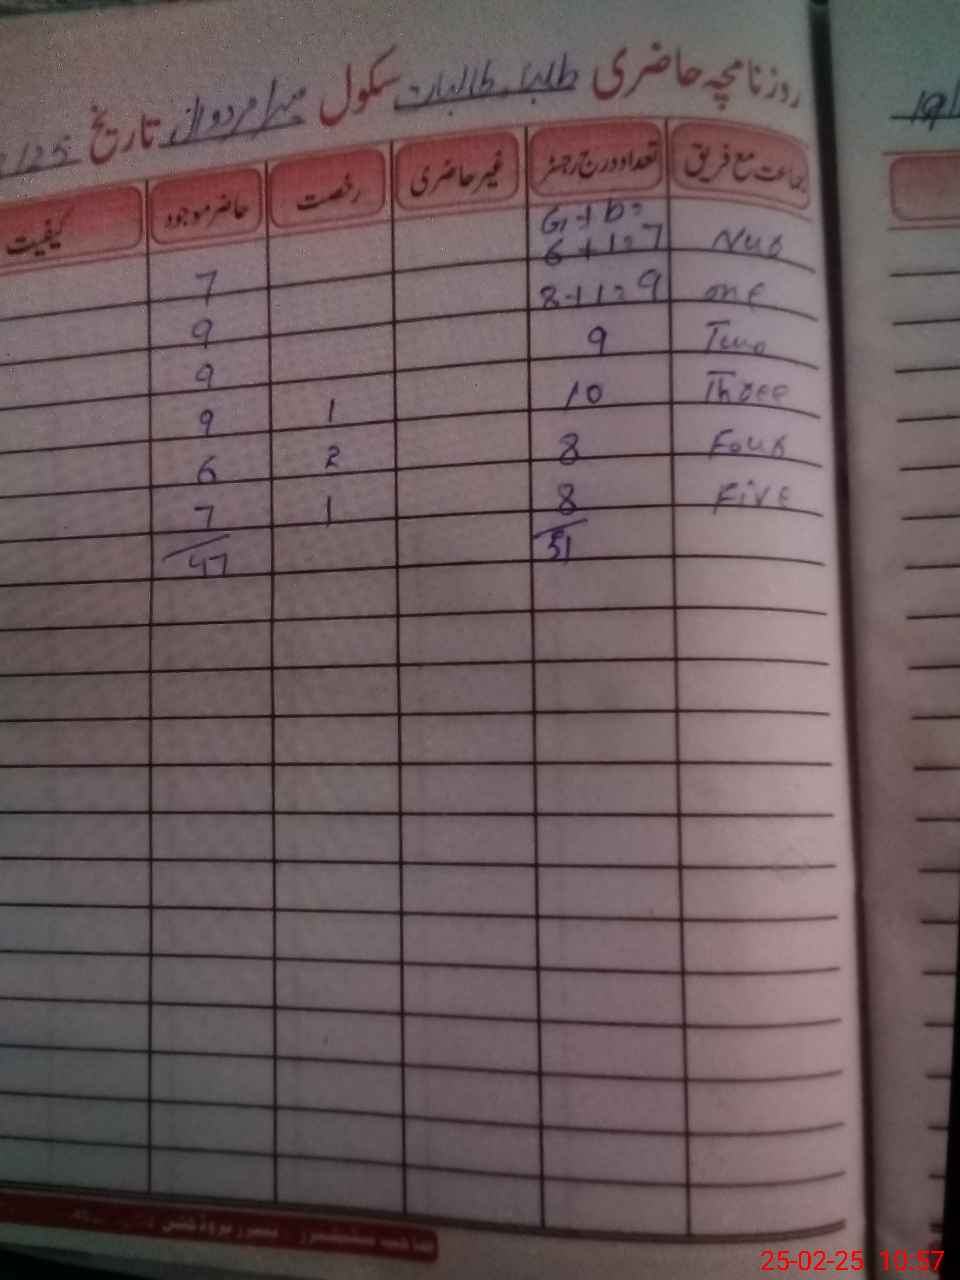 روزنامچہ حاضری طلبا۔ طالبات سکول تاریخ /25
جماعت مع فریق تعداد درج رجسٹر غیر حاضری رخصت حاضر موجود کیفیت
G + b =
Nur 6+1=7 7
one 8+1=9 9
Two 9 9
Three 10 1 9
Four 8 2 6
Five 8 1 7
51 47
19/
25-02-25 10:57